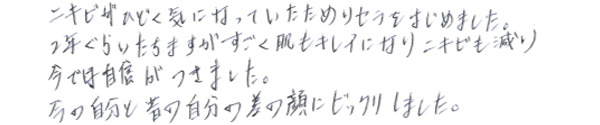 ニキビがひどく気になっていたためリセラをはじめました。
2年ぐらいたちますがすごく肌もキレイになりニキビも減り
今では自信がつきました。
今の自分と昔の自分の差の顔にビックリしました。